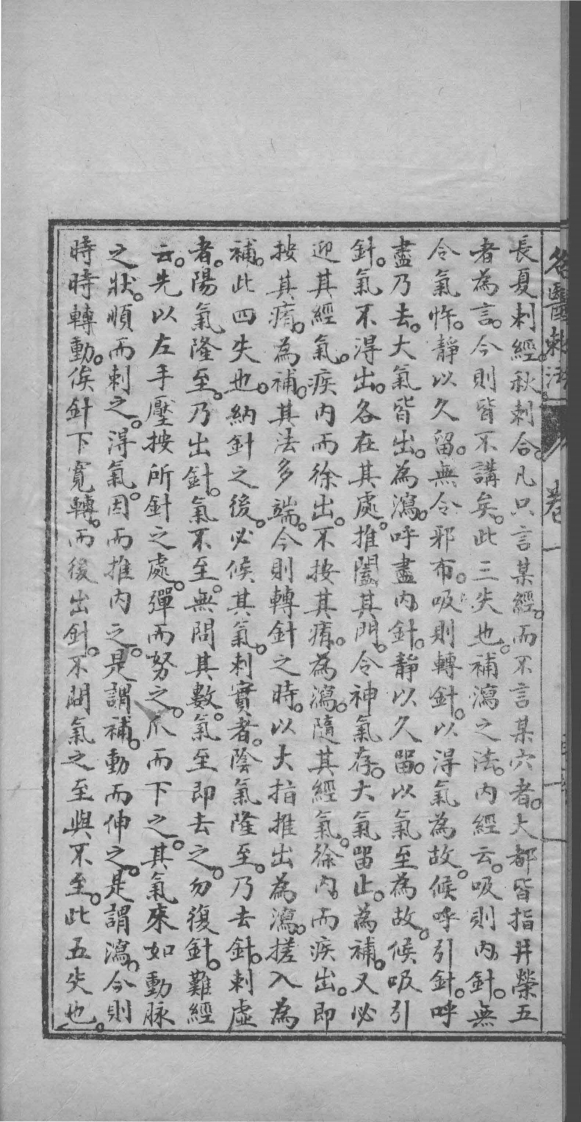 名醫
卷一
長夏刺經。秋刺合。凡只言某經。而不言某穴者。大都皆指井滎五
者為言。今則皆不講矣。此三失也。補瀉之法。內經云。吸則內針。無
令氣忤。靜以久留。無令邪布。吸則轉針。以得氣為故。候呼引針。呼
盡乃去。大氣皆出。為瀉。呼盡內針。靜以久留。以氣至為故。候吸引
針。氣不得出。各在其處。推闔其門。令神氣存。大氣留止。為補。又必
迎其經氣。疾內而徐出。不按其痏。為瀉。隨其經氣。徐內而疾出。即
按其痏。為補。其法多端。今則轉針之時。以大指推出為瀉。搓入為
補。此四失也。納針之後。必候其氣。刺實者。陰氣隆至。乃去針。刺虛
者。陽氣隆至。乃出針。氣不至。無問其數。氣至即去之。勿復針。難經
云。先以左手壓按所針之處。彈而努之。爪而下之。其氣來如動脉
之狀。順而刺之。得氣。因而推內之。是謂補。動而伸之。是謂瀉。今則
時時轉動。俟針下寬轉。而後出針。不問氣之至與不至。此五失也。